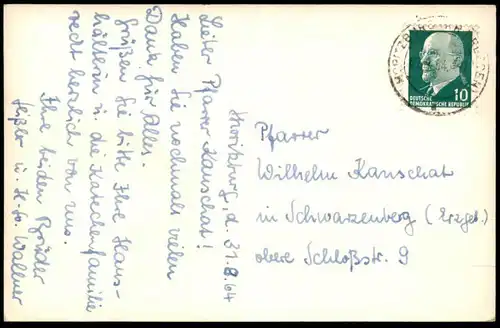 Moritzburg, d. 31.8.64
Lieber Pfarrer Kanschat!
Haben Sie nochmals vielen
Dank für Alles.
Grüßen Sie bitte Ihre Haus-
hälterin u. die
recht herzlich von uns.
Ihre beiden Brüder
u. Wallner
Pfarrer
Wilhelm Kanschat
in Schwarzenberg (Erzgeb.)
obere Schloßstr. 9
10
DEUTSCHE
DEMOKRATISCHE REPUBLIK